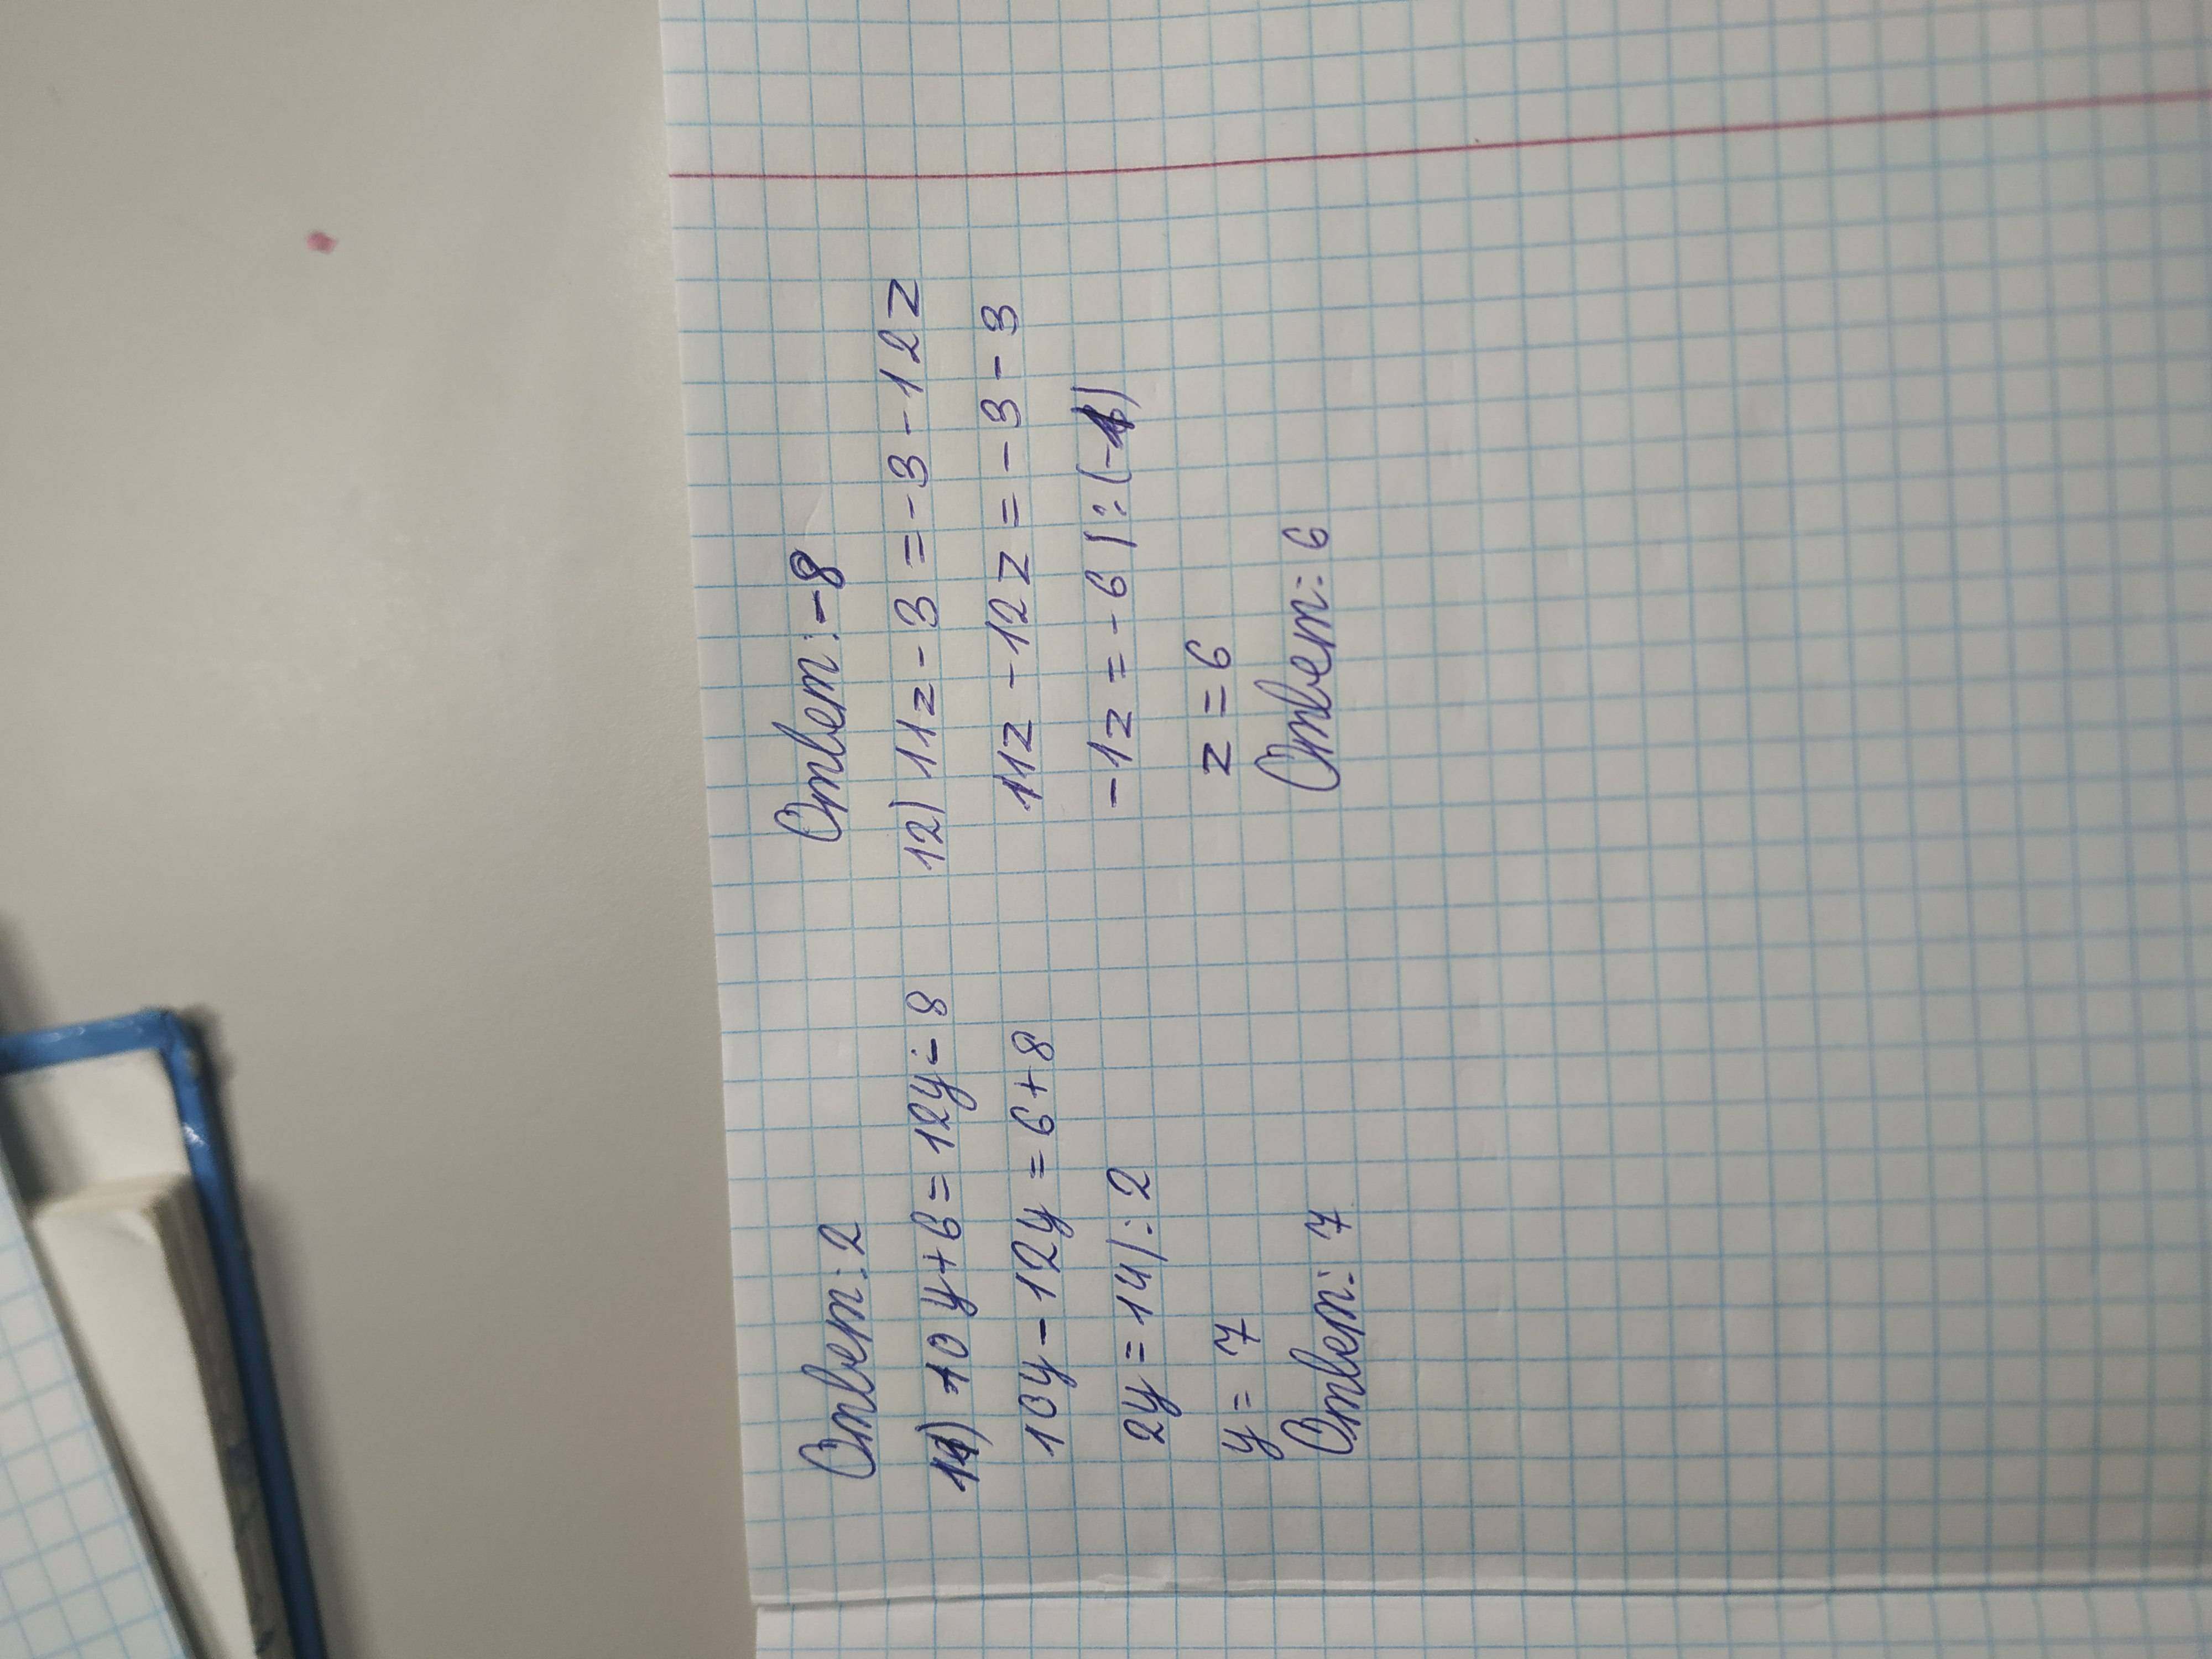 Ответ: 2
11) 10y+6=12y-8
10y-12y=6+8
2y=14|:2
y=7
Ответ: 7
Ответ:-8
12) 11z-3=-3-12z
11z-12z=-3-3
-1z=-6|:(-1)
z=6
Ответ: 6